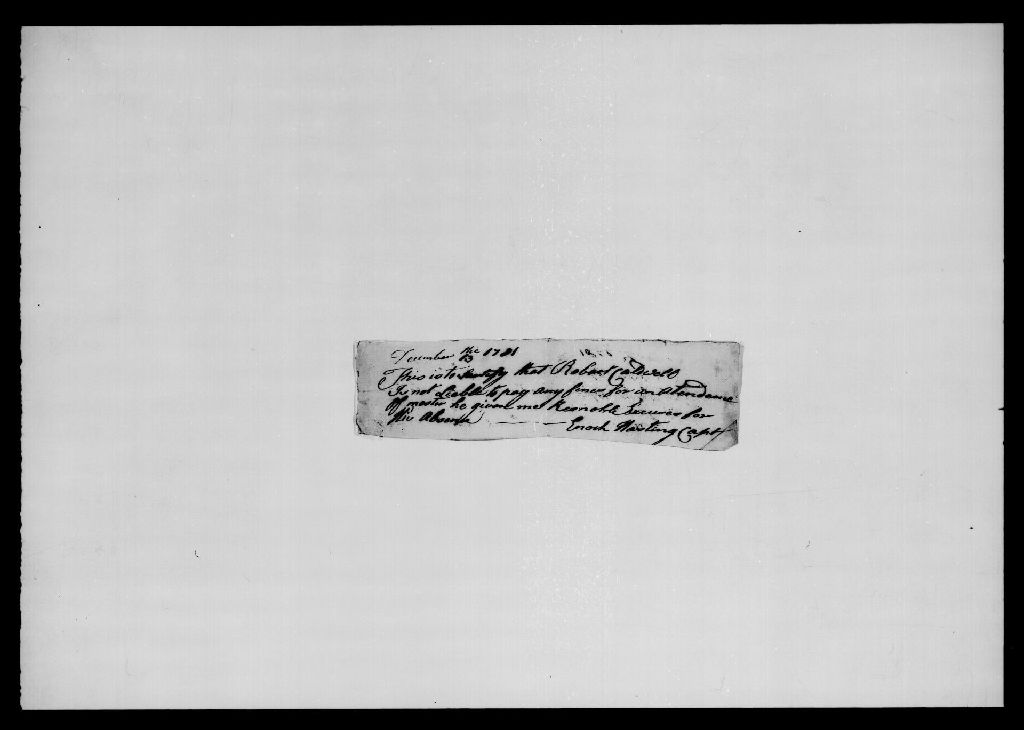 December the 13 1781
This is to Sertify that Robert Caldwell
Is not Liable to pay any fines for un atendance
Of master he given me Resnoble Excuses for
His Absence — — Enoch Hasting Capt